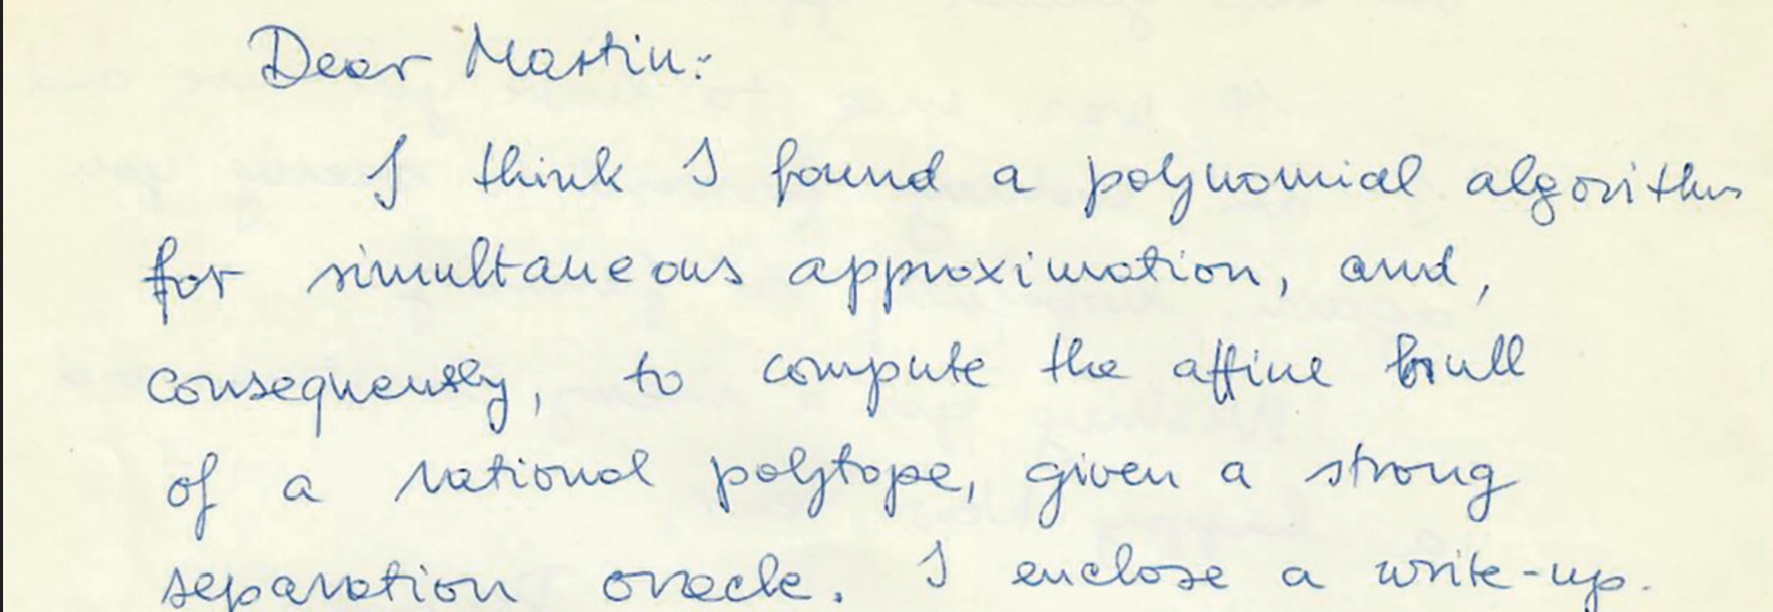 Dear Martin:
I think I found a polynomial algorithm
for simultaneous approximation, and,
consequently, to compute the affine hull
of a rational polytope, given a strong
separation oracle. I enclose a write-up.